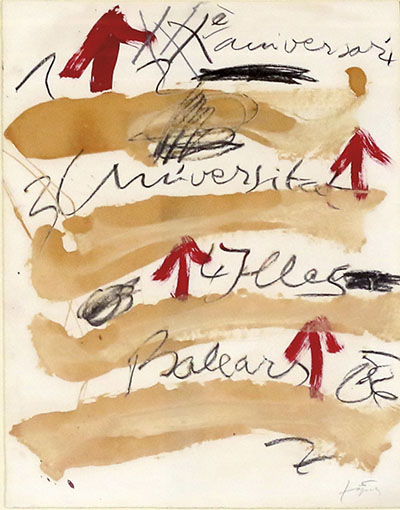 1 2 XXè aniversari 4
3 Universitat
4 Illes
Balears
2